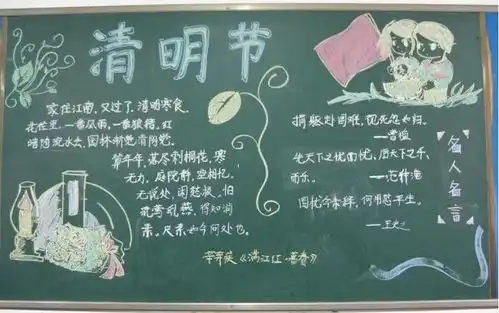 清明节
家在江南,又过了,清明寒食.
花径里,一番风雨,一番狼籍.红
暗随流水去,园林渐觉清阴密.
算年年,落尽刺桐花,寒
无力,庭院静,空相忆,
无说处,闲愁极.怕
流莺乳燕,得知消
息.尺素如今何处也.
辛弃疾《满江红·暮春》
捐躯赴国难,视死忽如归.
——曹植
先天下之忧而忧,后天下之乐
而乐.
——范仲淹
何用
平生.
名人名言